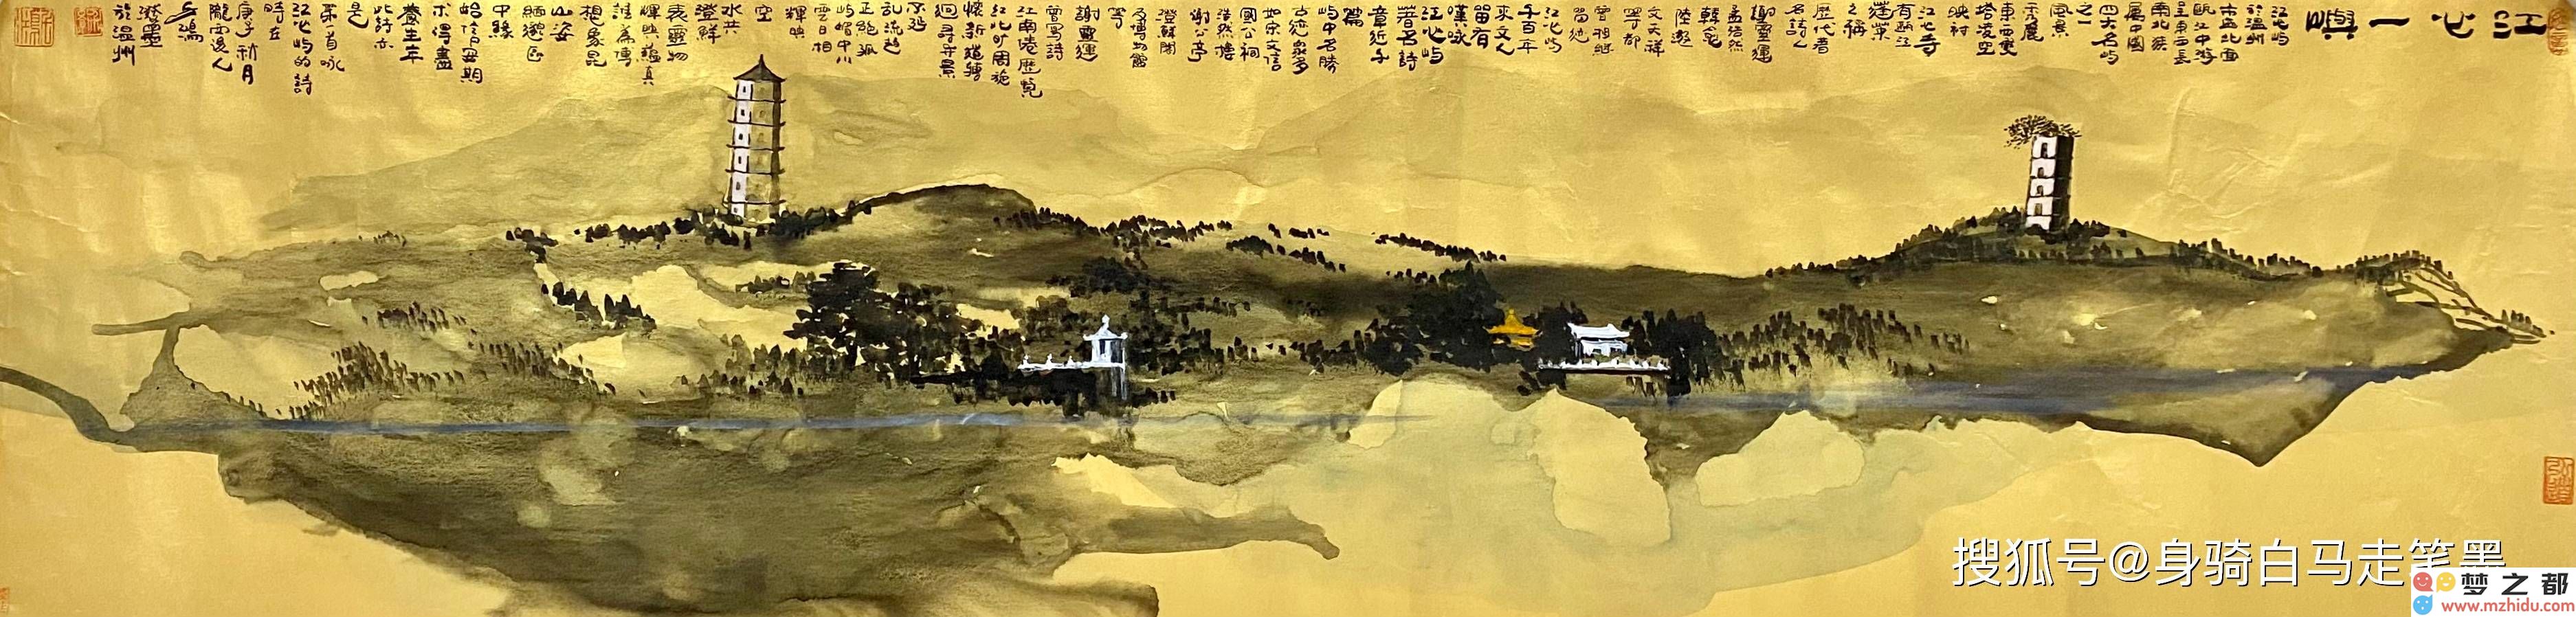 江心一嶼
江心屿
於溫州
市區北面
甌江中游
呈東西長
南北狹
屬中國
四大名屿
之一
風景
秀麗
東西雙
塔凌空
映衬
江心寺
有甌江
蓬萊
之稱
歷代着
名詩人
謝靈運
孟浩然
韓愈
陸游
文天祥
等都
曾相继
留迹
江心屿
千百年
來文人
留有
嘆咏
江心屿
著名詩
章近千
篇
屿中名勝
古迹眾多
如宋文信
國公祠
浩然樓
谢公亭
澄鮮閣
及博物館
等
謝靈運
曾寫詩
江南倦歷覽
江北旷周旋
懷新道轉
迴尋异景
不延
乱流趋
正絕孤
屿媚中川
雲日相
輝映
空
水共
澄鮮
表靈物
輝興蘊真
誰為傳
想象昆
山姿
緬邈區
中緣
始信安期
术得盡
養生年
此詩亦
是
第首咏
江心屿的詩
時在
庚子秋月
隴西逸人
岳鴻
潑墨
於溫州
搜狐号@身骑白马走笔墨
梦之都
www.mzhidu.com